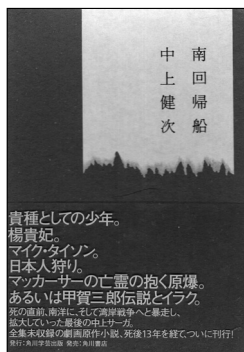 南回帰船
中上健次
貴種としての少年。
楊貴妃。
マイク・タイソン。
日本人狩り。
マッカーサーの亡霊の抱く原爆。
あるいは甲賀三郎伝説とイラク。
死の直前、南洋に、そして湾岸戦争へと暴走し、
拡大していった最後の中上サーガ。
全集未収録の劇画原作小説、死後13年を経て、ついに刊行!
発行:角川学芸出版 発売:角川書店